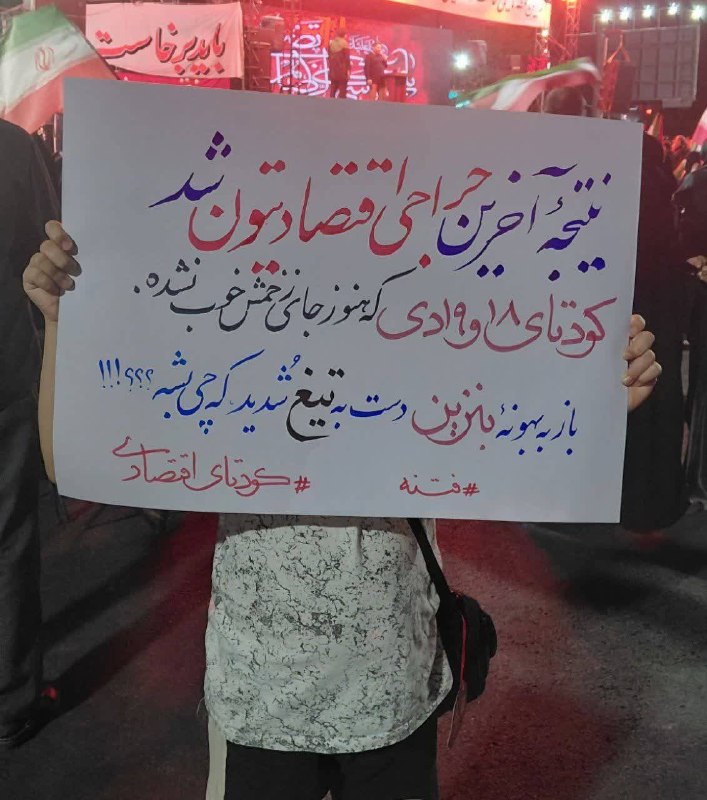 باید برخاست
نتیجهٔ آخرین جراحی اقتصادیتون شد
کودتای ۱۸ و ۱۹ دی که هنوز جای زخمش خوب نشده.
باز به بهونهٔ بنزین دست به تیغ شُدید که چی بشه؟؟؟!!!
#فتنه #کودتای اقتصادی